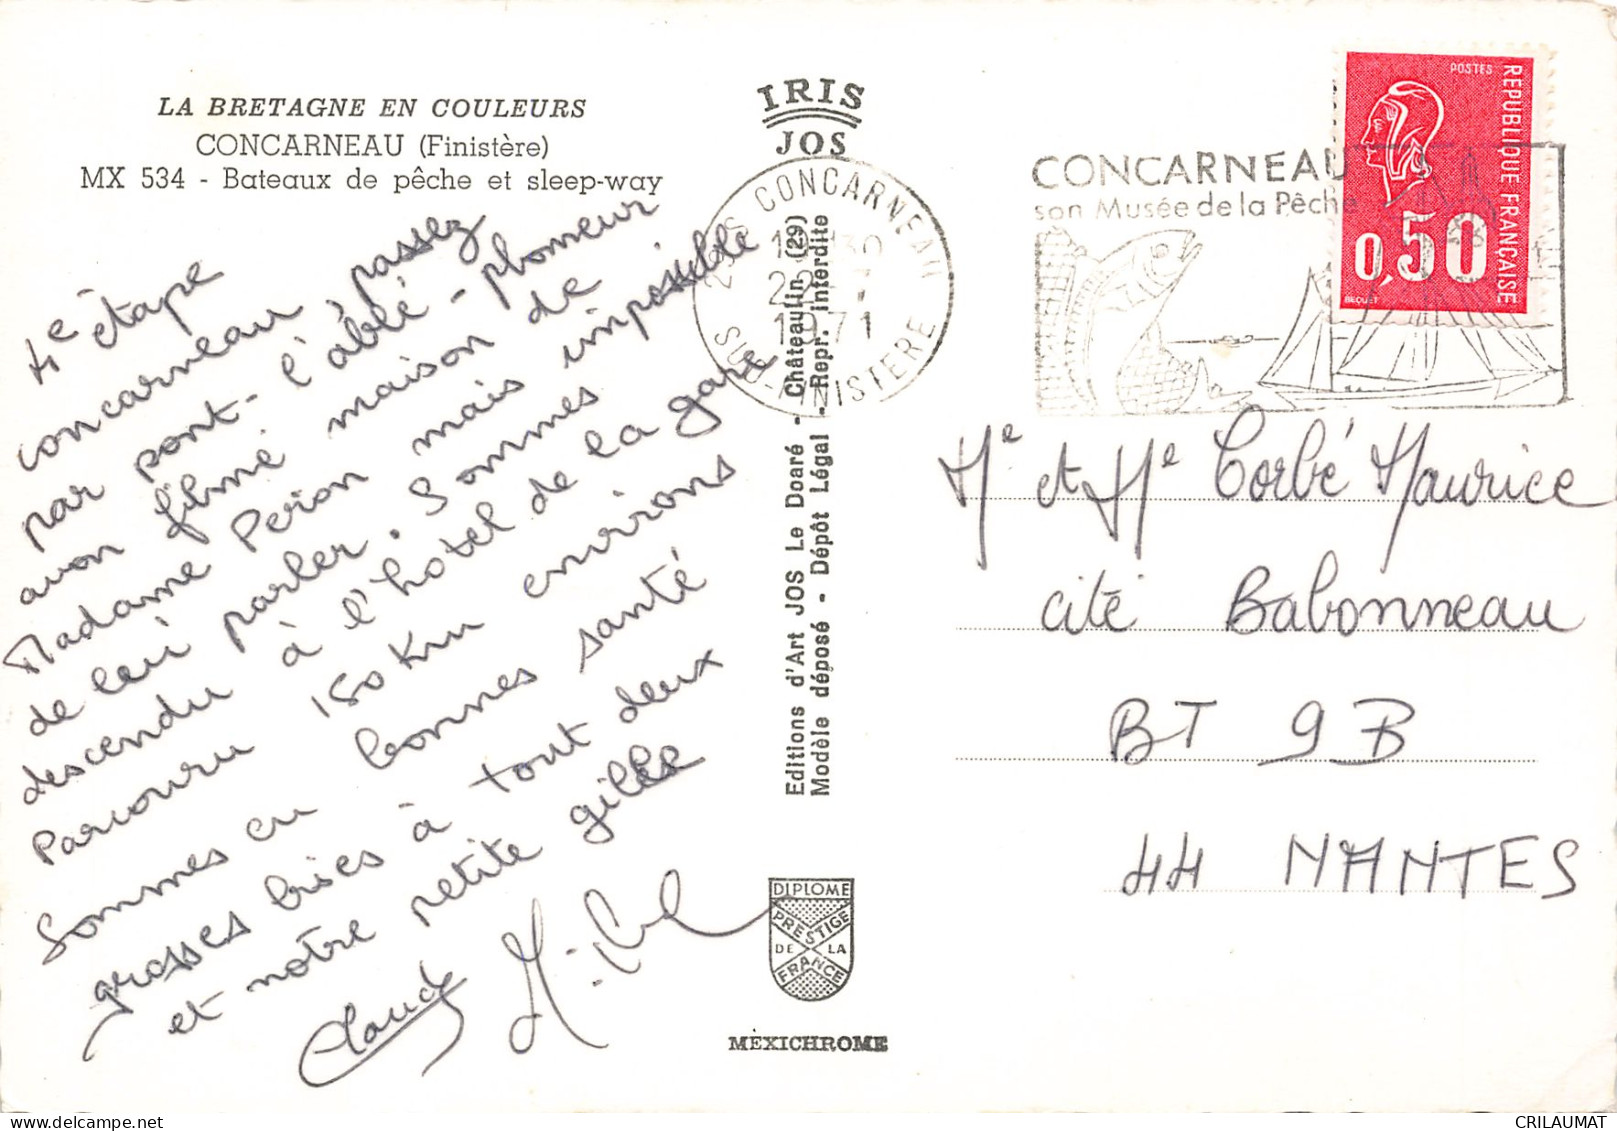 LA BRETAGNE EN COULEURS
CONCARNEAU (Finistère)
MX 534 - Bateaux de pêche et sleep-way
4e étape
concarneau passez
par pont-l'ablé-plomeur
avon filmé maison de
Madame Perion mais impossible
de lui parler. Sommes
descendu à l'hôtel de la gare
Parcouru 150 Km environs
Sommes en bonnes santé
grosses bises à tout deux
et notre petite gilles
Claude Michel
IRIS
JOS
29S CONCARNEAU
1971
SUD-FINISTERE
Editions d'Art JOS Le Doaré - Châteaulin (29)
Modèle déposé - Dépôt Légal - Repr. interdite
DIPLOME
PRESTIGE
DE LA
FRANCE
MEXICHROME
CONCARNEAU
son Musée de la Pêche
POSTES
REPUBLIQUE FRANÇAISE
0,50
BEQUET
Mr et Me Corbé Maurice
cité Babonneau
BT 9B
44 NANTES
CRILAUMAT